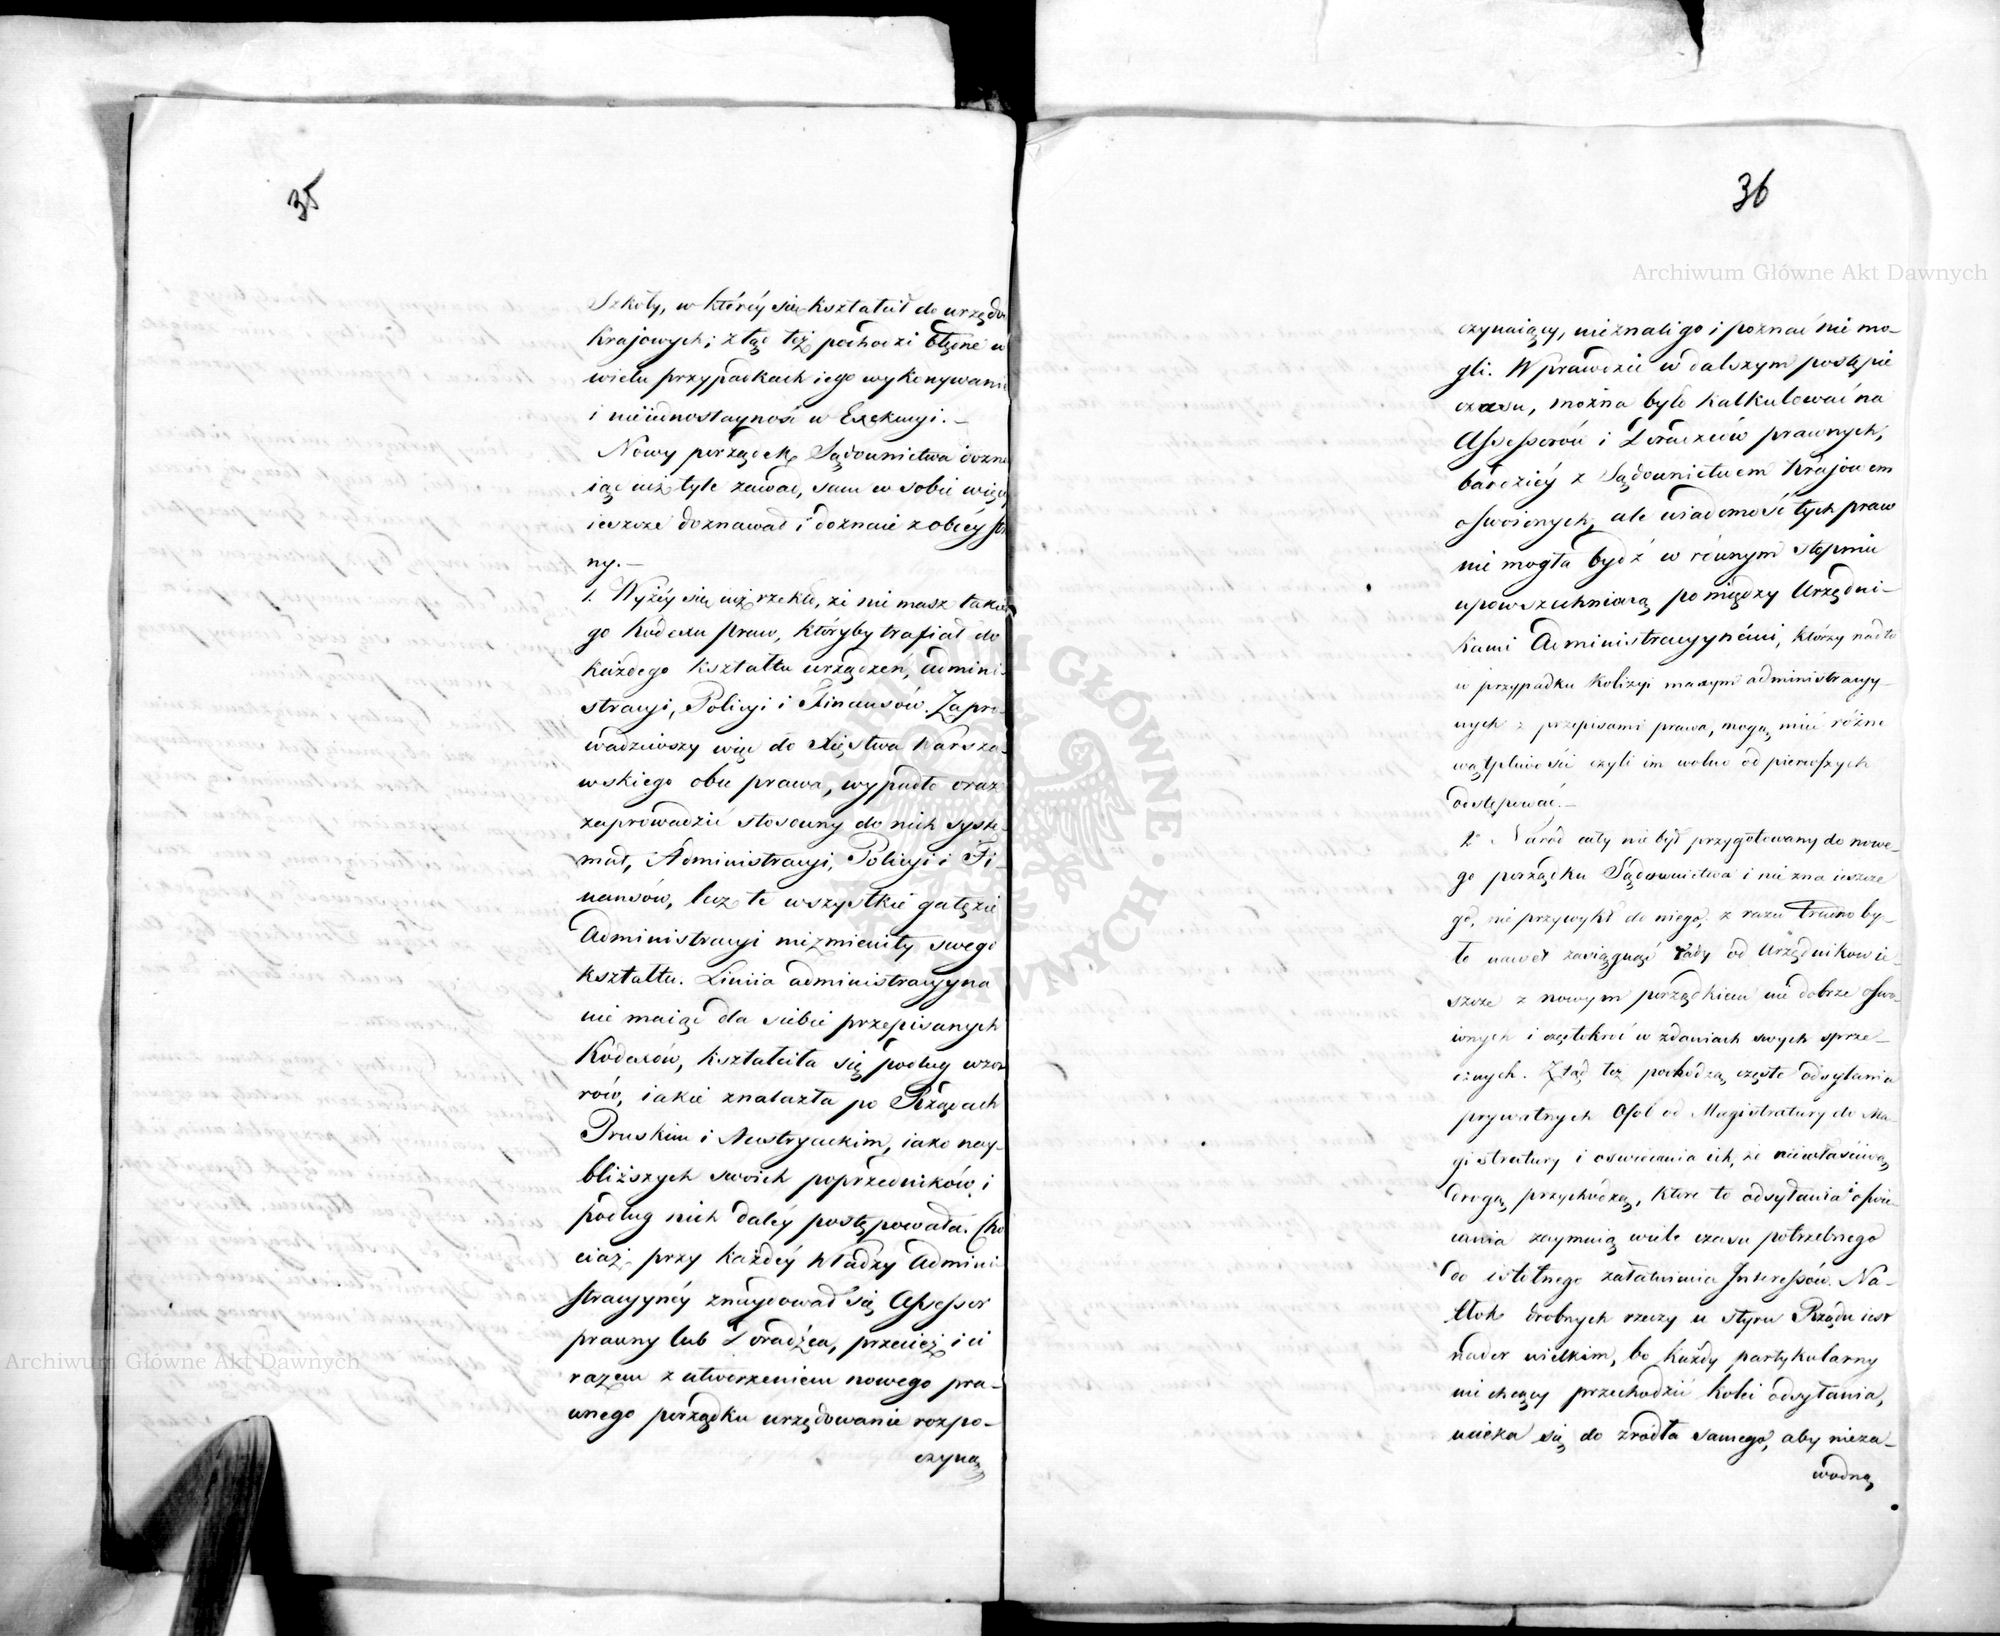 35
Szkoły, w któréy się kształcił do urzędów
Krajowych; ztąd też pochodzi błędne w
wielu przypadkach iego wykonywanie
i nieiednostayność w Exekucyi. —
Nowy porządek Sądownictwa dozna
iąc iuż tyle zawad, sam w sobie więcéy
ieszcze doznawał i doznaie z obcéy stro
ny. —
1. Wyżéy się iuż rzekło, że nie masz takie
go Kodexu praw, któryby trafiał do
każdego kształtu urządzeń, admini-
stracyi, Policyi i Finansów. Zapro-
wadziwszy więc do Xięstwa Warsza-
wskiego obce prawa, wypadło oraz
zaprowadzić stosowny do nich syste-
mat, Administracyi, Policyi i Fi-
nansów, lecz te wszystkie gałęzie
Administracyi niezmieniły swego
kształtu. Liniia administracyyna
nie maiąc dla siebie przepisanych
Kodexów, kształciła się podług wzo-
rów, iakie znalazła po Rządach
Pruskim i Austryackim, iako nay-
bliższych swoich poprzedników, i
podług nich daléy postępowała. Cho
ciaż przy każdéy Władzy Admini
stracyynéy znaydował się Assessor
prawny lub Doradźca, przecież i ci
razem z utworzeniem nowego pra-
wnego porządku urzędowanie rozpo-
czyna
36
czynaiący, nieznali go i poznać nie mo-
gli. Wprawdzie w dalszym postępie
czasu, można było kalkulować na
Assessorów i Doradzców prawnych,
bardziéy z Sądownictwem Krajowem
oswoionych, ale wiadomość tych praw
nie mogła bydź w równym stopniu
upowszechnioną pomiędzy Urzędni-
kami Administracyynémi, którzy nadto
w przypadku Kolizyi maxym administracyy-
nych z przepisami prawa, mogą mieć różne
wątpliwości czyli im wolno od pierwszych
odstępować. —
2 Naród cały nie był przygotowany do nowe-
go porządku Sądownictwa i nie zna ieszcze
go, nie przywykł do niego, z razu trudno by-
ło nawet zasiągnąć rady od Urzędników ie-
szcze z nowym porządkiem nie dobrze oswo-
ionych i częstokroć w zdaniach swych sprze-
cznych. Ztąd też pochodzą częste odsyłania
prywatnych Osób od Magistratury do Ma-
gistratury i oswiecania ich, że niewłaściwą
drogą przychodzą, które to odsyłania i oświe-
cania zaymuią wiele czasu potrzebnego
do istotnego załatwienia Interessów. Na-
tłok drobnych rzeczy u styru Rządu iest
nader wielkim, bo każdy partykularny
nie chcący przechodzić kolei odsyłania,
ucieka się do źródła samego, aby nieza-
wodną
Archiwum Główne Akt Dawnych
Archiwum Główne Akt Dawnych
ARCHIWUM GŁÓWNE AKT DAWNYCH